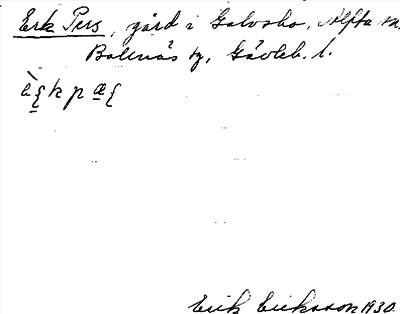 Erk Pers, gård i Galvsbo, Alfta sn,
Bollnäs tg, Gävleb. l.
Erik Eriksson 1930.